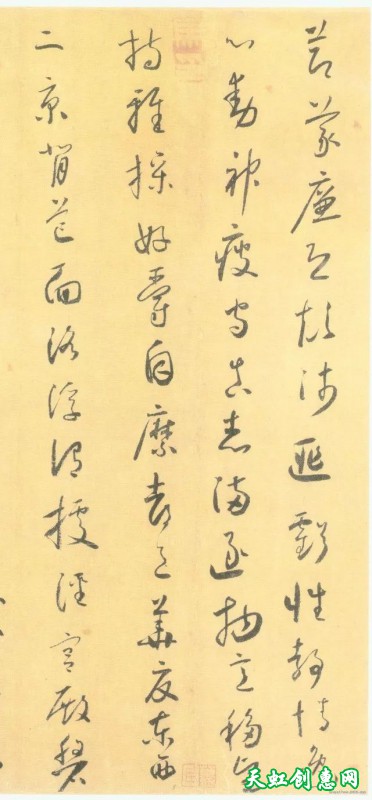 節義廉退顛沛匪虧性靜情逸
心動神疲守真志滿逐物意移堅
持雅操好爵自縻都邑華夏東西
二京背芒面洛浮渭據涇宮殿盤
天虹创惠网